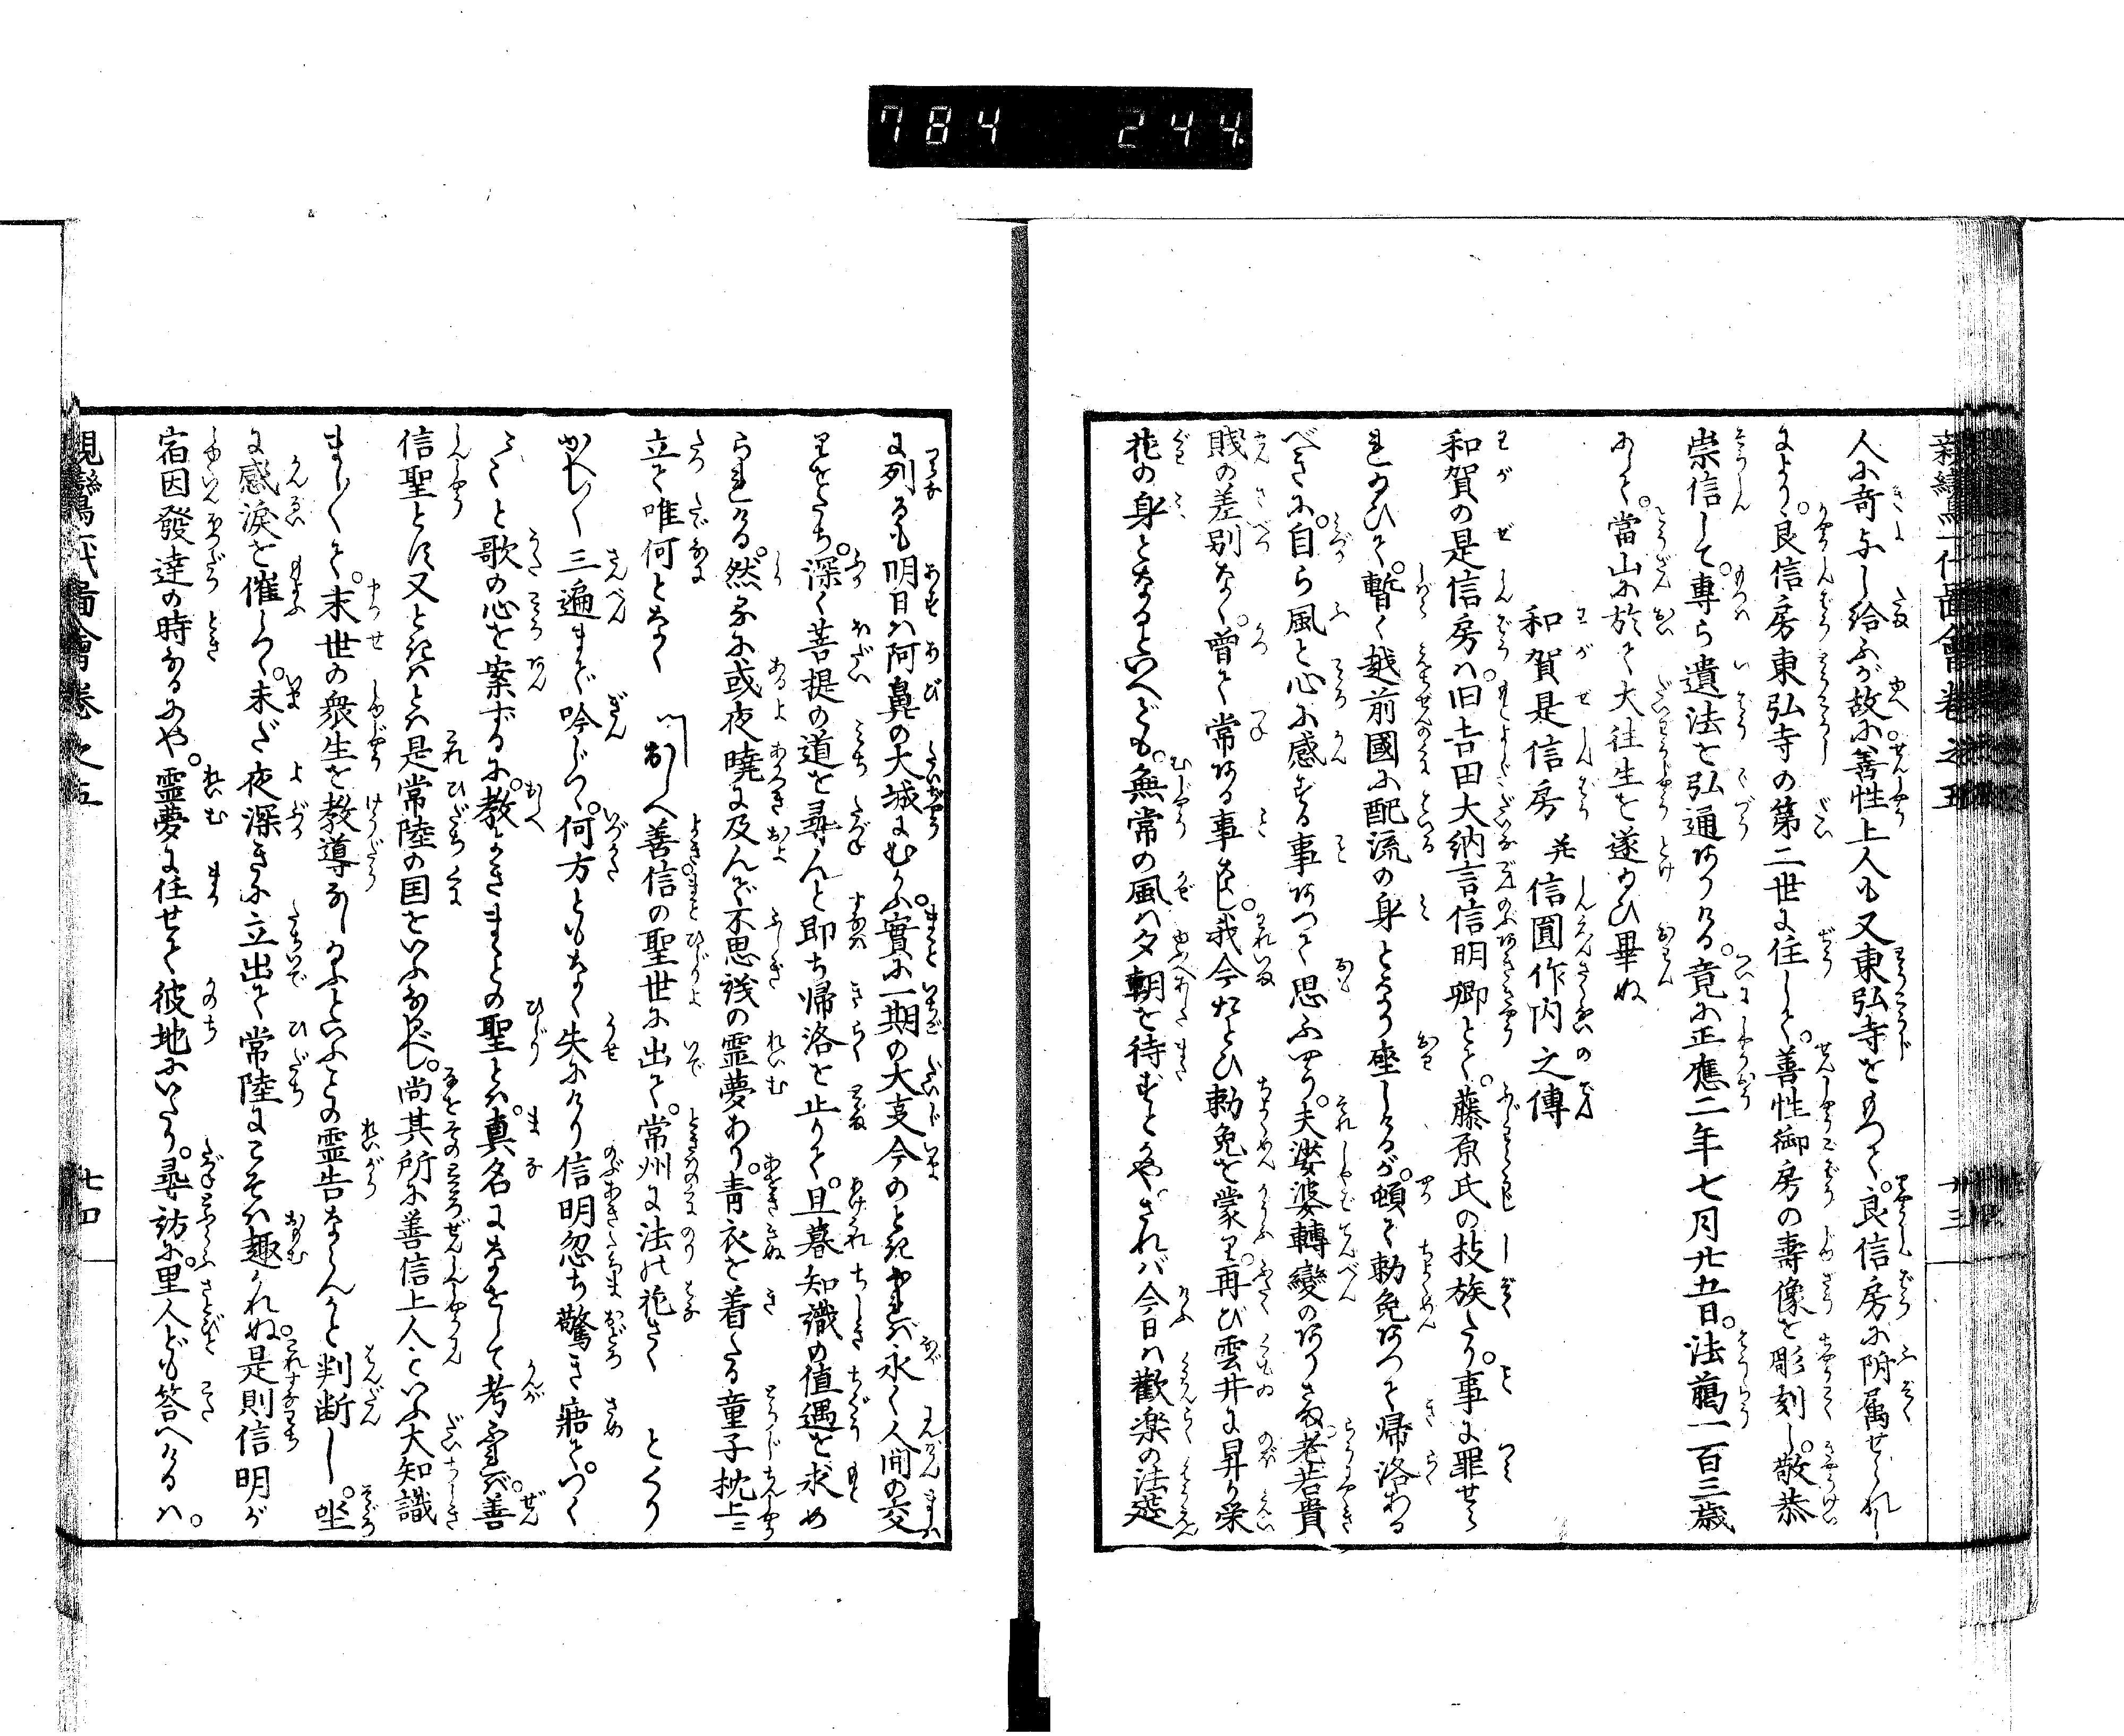 784 244
人に奇よし給ふが故に善性上人も又東弘寺をもつて。良信房に附属せられし
により。良信房東弘寺の第二世に住して。善性御房の壽像を彫刻し。敬恭
崇信して。専ら遺法を弘通ありける。竟に正應二年七月廿五日。法﨟一百三歳
にして。當山に於て大往生を遂給ひ畢ぬ
和賀是信房 并 信圓作内之傳
和賀の是信房ハ。旧吉田大納言信明卿とて。藤原氏の枝族たり。事に罪せら
れ給ひて。暫く越前國に配流の身となり座しけるが。頓て勅免あつて帰洛ある
べきに。自ら風と心に感ずる事あつて思ふやう。夫娑婆轉變のありさま。老若貴
賤の差別なく。曽て常ある事なし。我今たとひ勅免を蒙り。再び雲井に昇り栄
花の身となるといへども。無常の風ハ夕朝を待ずとかや。されバ今日ハ歡楽の法莚
に列るも明日ハ阿鼻の大城にむかふ。實に一期の大支今のときなれバ。永く人間の交
りをたち。深く菩提の道を尋んと即ち帰洛を止りて。旦暮知識の値遇を求め
られける。然るに或夜暁に及んで不思議の霊夢あり。青衣を着たる童子枕上ニ
立て唯何となく
おしへ善信の聖世に出て。常州に法の花さくとくり
かへし〳〵三遍まで吟じつゝ。何方ともなく失にけり信明忽ち驚き寤て。つく
〴〵と歌の心を案ずるに。教よきまことの聖とハ。真名になをして考ふれバ。善
信聖とす又ときハとハ是常陸の国をいふなるべし。尚其所に善信上人といふ大知識
まし〳〵て。末世の衆生を教導なし給ふといふとの霊告ならんかと判断し。坐
に感涙を催しつゝ。未だ夜深きに立出て常陸にこそハ趣かれぬ。是則信明が
宿因發達の時なるにや。霊夢に任せて彼地にいたり。尋訪に。里人ども答へけるハ。
親鸞一代圖會巻之五
七四